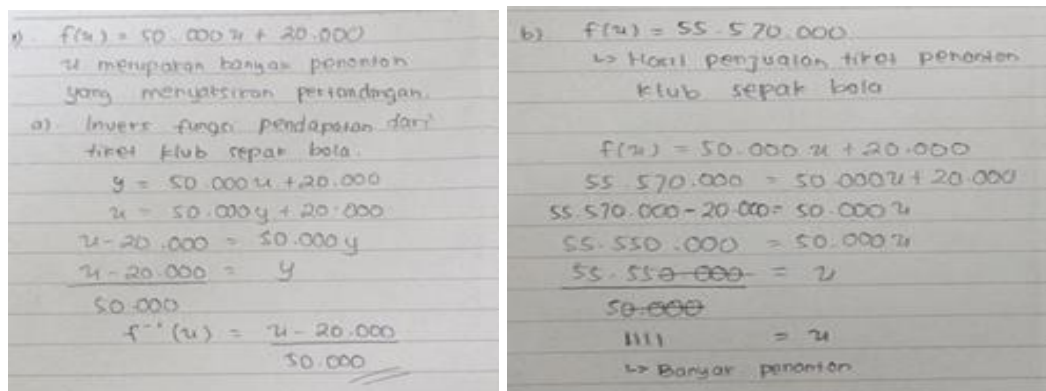 1). f(x) = 50.000 x + 20.000
x merupakan banyak penonton
yang menyaksikan pertandingan.
a). Invers fungsi pendapatan dari
tiket klub sepak bola.
y = 50.000x + 20.000
x = 50.000y + 20.000
x - 20.000 = 50.000y
x - 20.000 = y
50.000
f⁻¹(x) = x - 20.000
50.000
b) f(x) = 55.570.000
↳ Hasil penjualan tiket penonton
klub sepak bola
f(x) = 50.000 x + 20.000
55.570.000 = 50.000x + 20.000
55.570.000 - 20.000 = 50.000 x
55.550.000 = 50.000 x
55.550.000 = x
50.000
1111 = x
↳ Banyak penonton